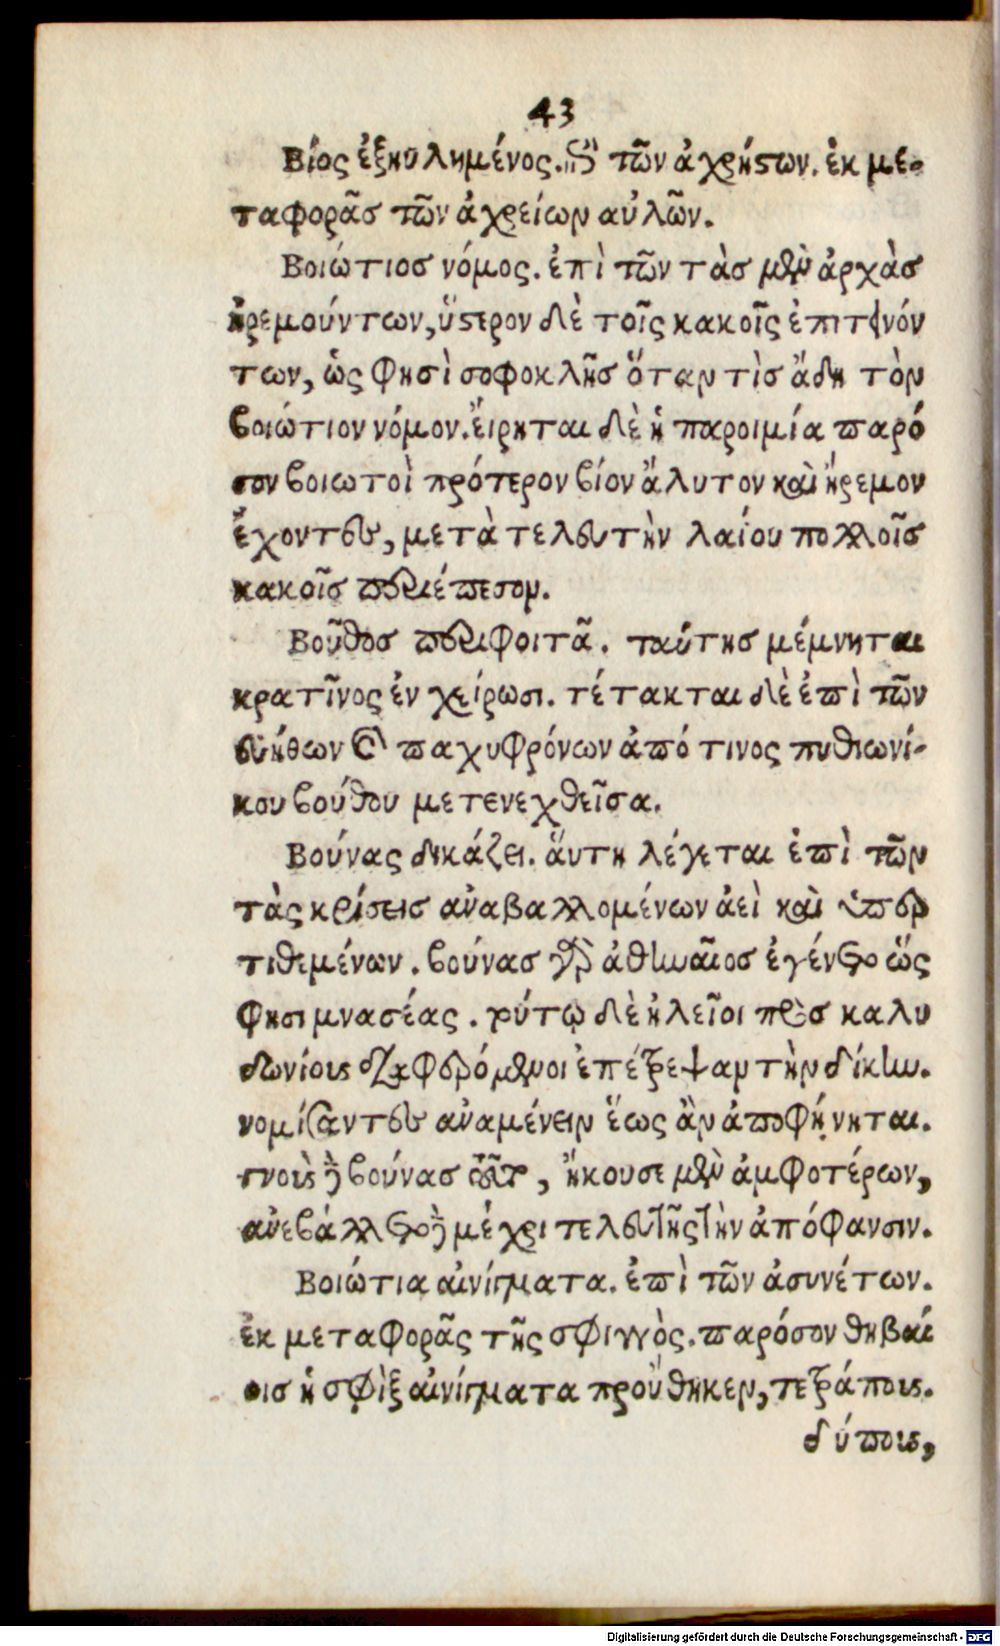 43
Βίος ἐξηυλημένος. ἐπὶ τῶν ἀχρήστων. ἐκ με-
ταφορᾶς τῶν ἀχρείων αὐλῶν.
Βοιώτιος νόμος. ἐπὶ τῶν τὰς μὲν ἀρχὰς
ἠρεμούντων, ὕστερον δὲ τοῖς κακοῖς ἐπιτεινόν
των, ὡς φησὶ σοφοκλῆς ὅταν τὶς ἄδη τὸν
βοιώτιον νόμον. ἔιρηται δὲ ἡ παροιμία παρό
σον βοιωτοὶ πρότερον βίον ἄλυτον καὶ ἤρεμον
ἔχοντες, μετὰ τελευτὴν λαίου πολλοῖς
κακοῖς περιέπεσον.
Βοῦθος περιφοιτᾶ. ταύτης μέμνηται
κρατῖνος ἐν χείρωσι. τέτακται δὲ ἐπὶ τῶν
εὐήθων καὶ παχυφρόνων ἀπό τινος πυθιωνί-
κου βούθου μετενεχθεῖσα.
Βούνας δικάζει. ἅυτη λέγεται ἐπὶ τῶν
τὰς κρίσεις αὐαβαλλομένων ἀεὶ καὶ ὑπερ
τιθεμένων. βούνας γὰρ ἀθηναῖος ἐγένετο ὥς
φησι μνασέας. τούτῳ δὲ ἠλεῖοι πρὸς καλυ
δωνίους διαφερόμενοι ἐπέτρεψαν τὴν δίκην.
νομίσαντες αὐαμένειν ἕως ἂν ἀποφήνηται.
γνοὺς δὲ βούνας τοῦτο, ἤκουσε μὲν ἀμφοτέρων,
αὐεβάλλετο δὲ μέχρι τελευτῆς τὴν ἀπόφανσιν.
Βοιώτια αἰνίγματα. ἐπὶ τῶν ἀσυνέτων.
ἐκ μεταφορᾶς τῆς σφιγγὸς. παρόσον θηβαί
οις ἡ σφὶγξ αἰνίγματα προὔθηκεν, τετράπους.
δύπους,
Digitalisierung gefördert durch die Deutsche Forschungsgemeinschaft - DFG